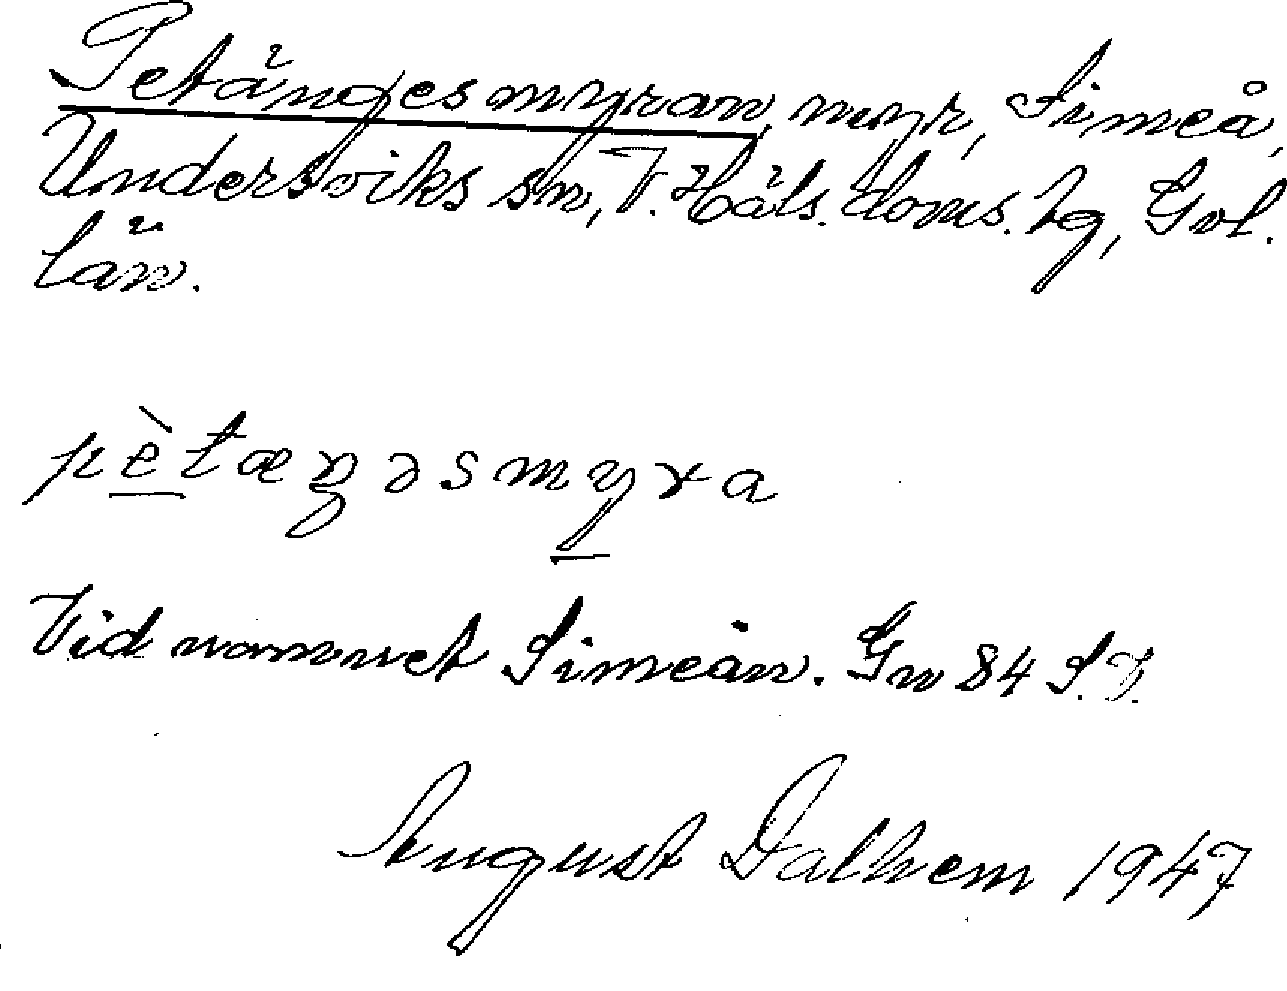 Petängesmyran, myr, Simeå,
Undersviks sn, V. Häls. doms. hg, Gvl.
län.
pètæŋəsmyra
Vid namnet Simeån. Gn 84 S.V.
August Dalhem 1947